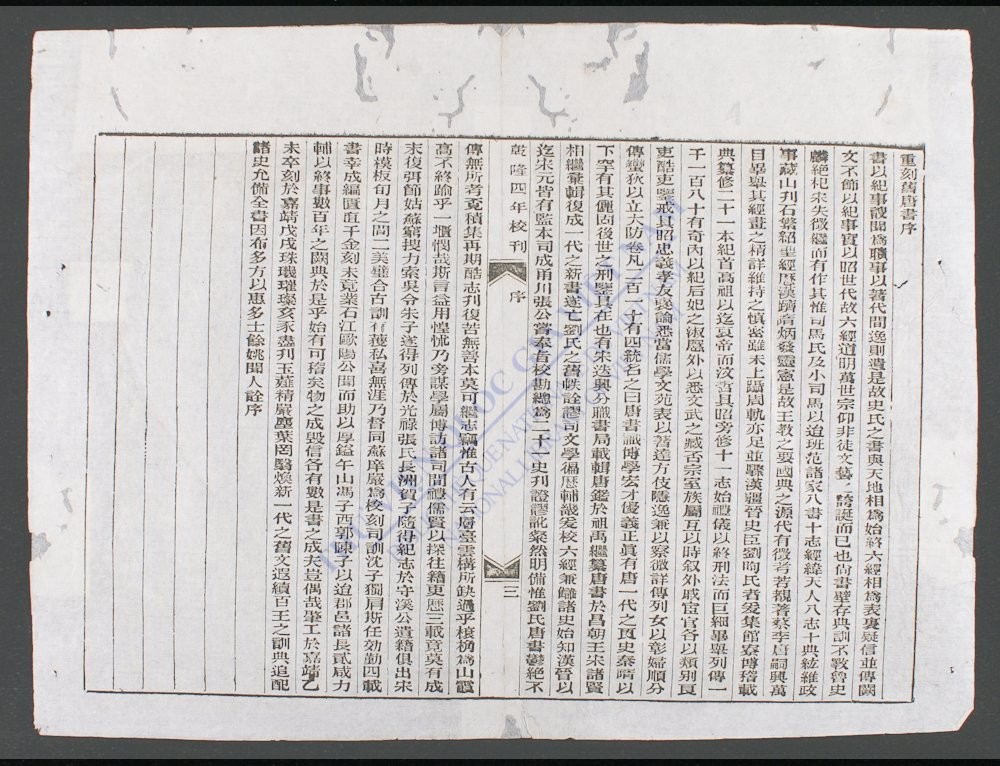 重刻舊唐書序
書以紀事謏聞爲聵事以著代間逸則遺是故史氏之書與天地相爲始終六經相爲表裏疑信並傳闕
文不飾以紀事實以昭世代故六經道明萬世宗仰非徒文藝之誇誕而已也尚書壁存典訓不斁魯史
麟絕杞宋失徵繼而有作其惟司馬氏及小司馬以迨班范諸家八書十志經緯天人八志十典絃維政
事藏山刊石繁紹聖經歷漢躋隋炳發靈憲是故王教之要國典之源代有徵考若覩蓍蔡李唐嗣興萬
目畢舉其經畫之精詳維持之慎密雖未上躡周軌亦足並驟漢疆晉史臣劉昫氏者爰集館寮博稽載
典纂修二十一本紀首高祖以迄哀帝而汶杳具昭旁修十一志始禮儀以終刑法而巨細畢舉列傳一
千一百八十有奇內以紀后妃之淑慝外以悉文武之臧否宗室族屬互以時叙外戚宦官各以類別良
吏酷吏鑒戒具昭忠義孝友褒論悉當儒學文苑表以著達方伎隱逸兼以察微詳傳列女以彰婦順分
傳蠻狄以立大防卷凡二百一十有四統名之曰唐書識博學宏才優義正眞有唐一代之良史秦隋以
下罕有其儷固後世之刑鑒具在也有宋迭興分職書局載輯唐鑑於祖禹繼纂唐書於昌朝王宋諸賢
相繼彙輯復成一代之新書遂亡劉氏之舊帙詮謬司文學徧歷輔畿爰校六經兼讎諸史始知漢晉以
迄宋元皆有監本司成甬川張公嘗奉旨校勘總爲二十一史刊證謬訛粲然明備惟劉氏唐書鬱絕不
乾隆四年校刊
序
三
傳無所考竟積集再期酷志刊復苦無善本莫可繼志竊惟古人有云層臺雲構所缺過乎榱桷爲山霞
高不終踰乎一壥憫哉斯言益用惶慌乃旁謀學屬博訪諸司間禮儒賢以探往籍更歷三載竟莫有成
末復弭節姑蘇窮搜力索吳令朱子遂得列傳於光祿張氏長洲賀子隨得紀志於守溪公遺籍俱出宋
時模板旬月之間二美璧合古訓有獲私喜無涯乃督同蘇庠嚴爲校刻司訓沈子獨肩斯任効勤四載
書幸成編匱直千金刻未竟業石江歐陽公聞而助以厚鎰午山馮子西郭陳子以迨郡邑諸長貳咸力
輔以終事數百年之闕典於是乎始有可稽矣物之成毀信各有數是書之成夫豈偶哉肇工於嘉靖乙
未卒刻於嘉靖戊戌珠璣璀璨亥豕盡刊玉薤精嚴塵葉罔翳煥新一代之舊文遐續百王之訓典追配
諸史允備全書因布多方以惠多士餘姚聞人詮序
THƯ VIỆN QUỐC GIA VIỆT NAM